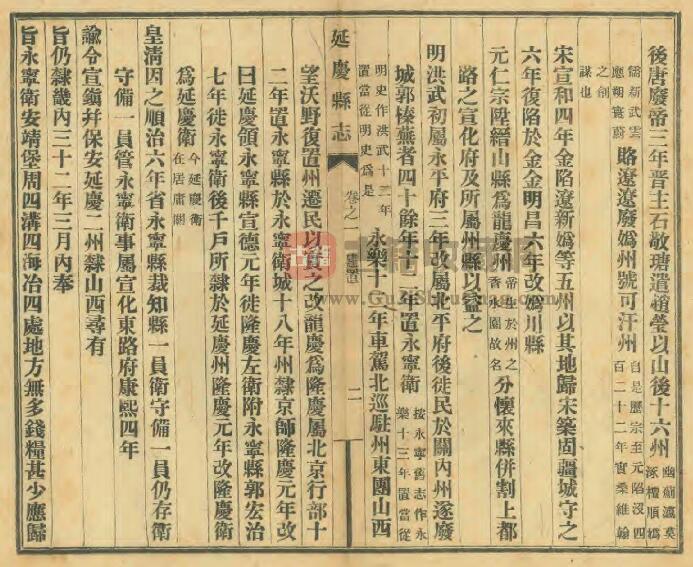 後唐廢帝三年晋主石敬瑭遣趙瑩以山後十六州幽薊瀛莫涿檀順媯
儒新武雲應朔寰蔚賂遼遼廢媯州號可汗州自是歷宗至元陷沒四百二十二年實桑維翰
之創謀也
宋宣和四年金陷遼新媯等五州以其地歸宋築固疆城守之
六年復陷於金金明昌六年改媯川縣
元仁宗陞縉山縣爲龍慶州帝生於州之香水園故名分懷來縣併割上都
路之宣化府及所屬州縣以益之
明洪武初屬永平府三年改屬北平府後徙民於關內州遂廢
城郭榛蕪者四十餘年十二年置永寧衛按永寧舊志作永樂十三年置當從
明史作洪武十三年置當從明史爲是永樂十二年車駕北巡駐州東團山西
延慶縣志 卷之一 建置 二
望沃野復置州遷民以實之改龍慶爲隆慶屬北京行部十
二年置永寧縣於永寧衛城十八年州隸京師隆慶元年改
曰延慶領永寧縣宣德元年徙隆慶左衛附永寧縣郭宏治
七年徙永寧衛後千戶所隸於延慶州隆慶元年改隆慶衛
爲延慶衛今延慶衛在居庸關
皇清因之順治六年省永寧縣裁知縣一員衛守備一員仍存衛
守備一員管永寧衛事屬宣化東路府康熙四年
諭令宣鎮幷保安延慶二州隸山西尋有
旨仍隸畿內三十二年三月內奉
旨永寧衛安靖堡周四溝四海冶四處地方無多錢糧甚少應歸